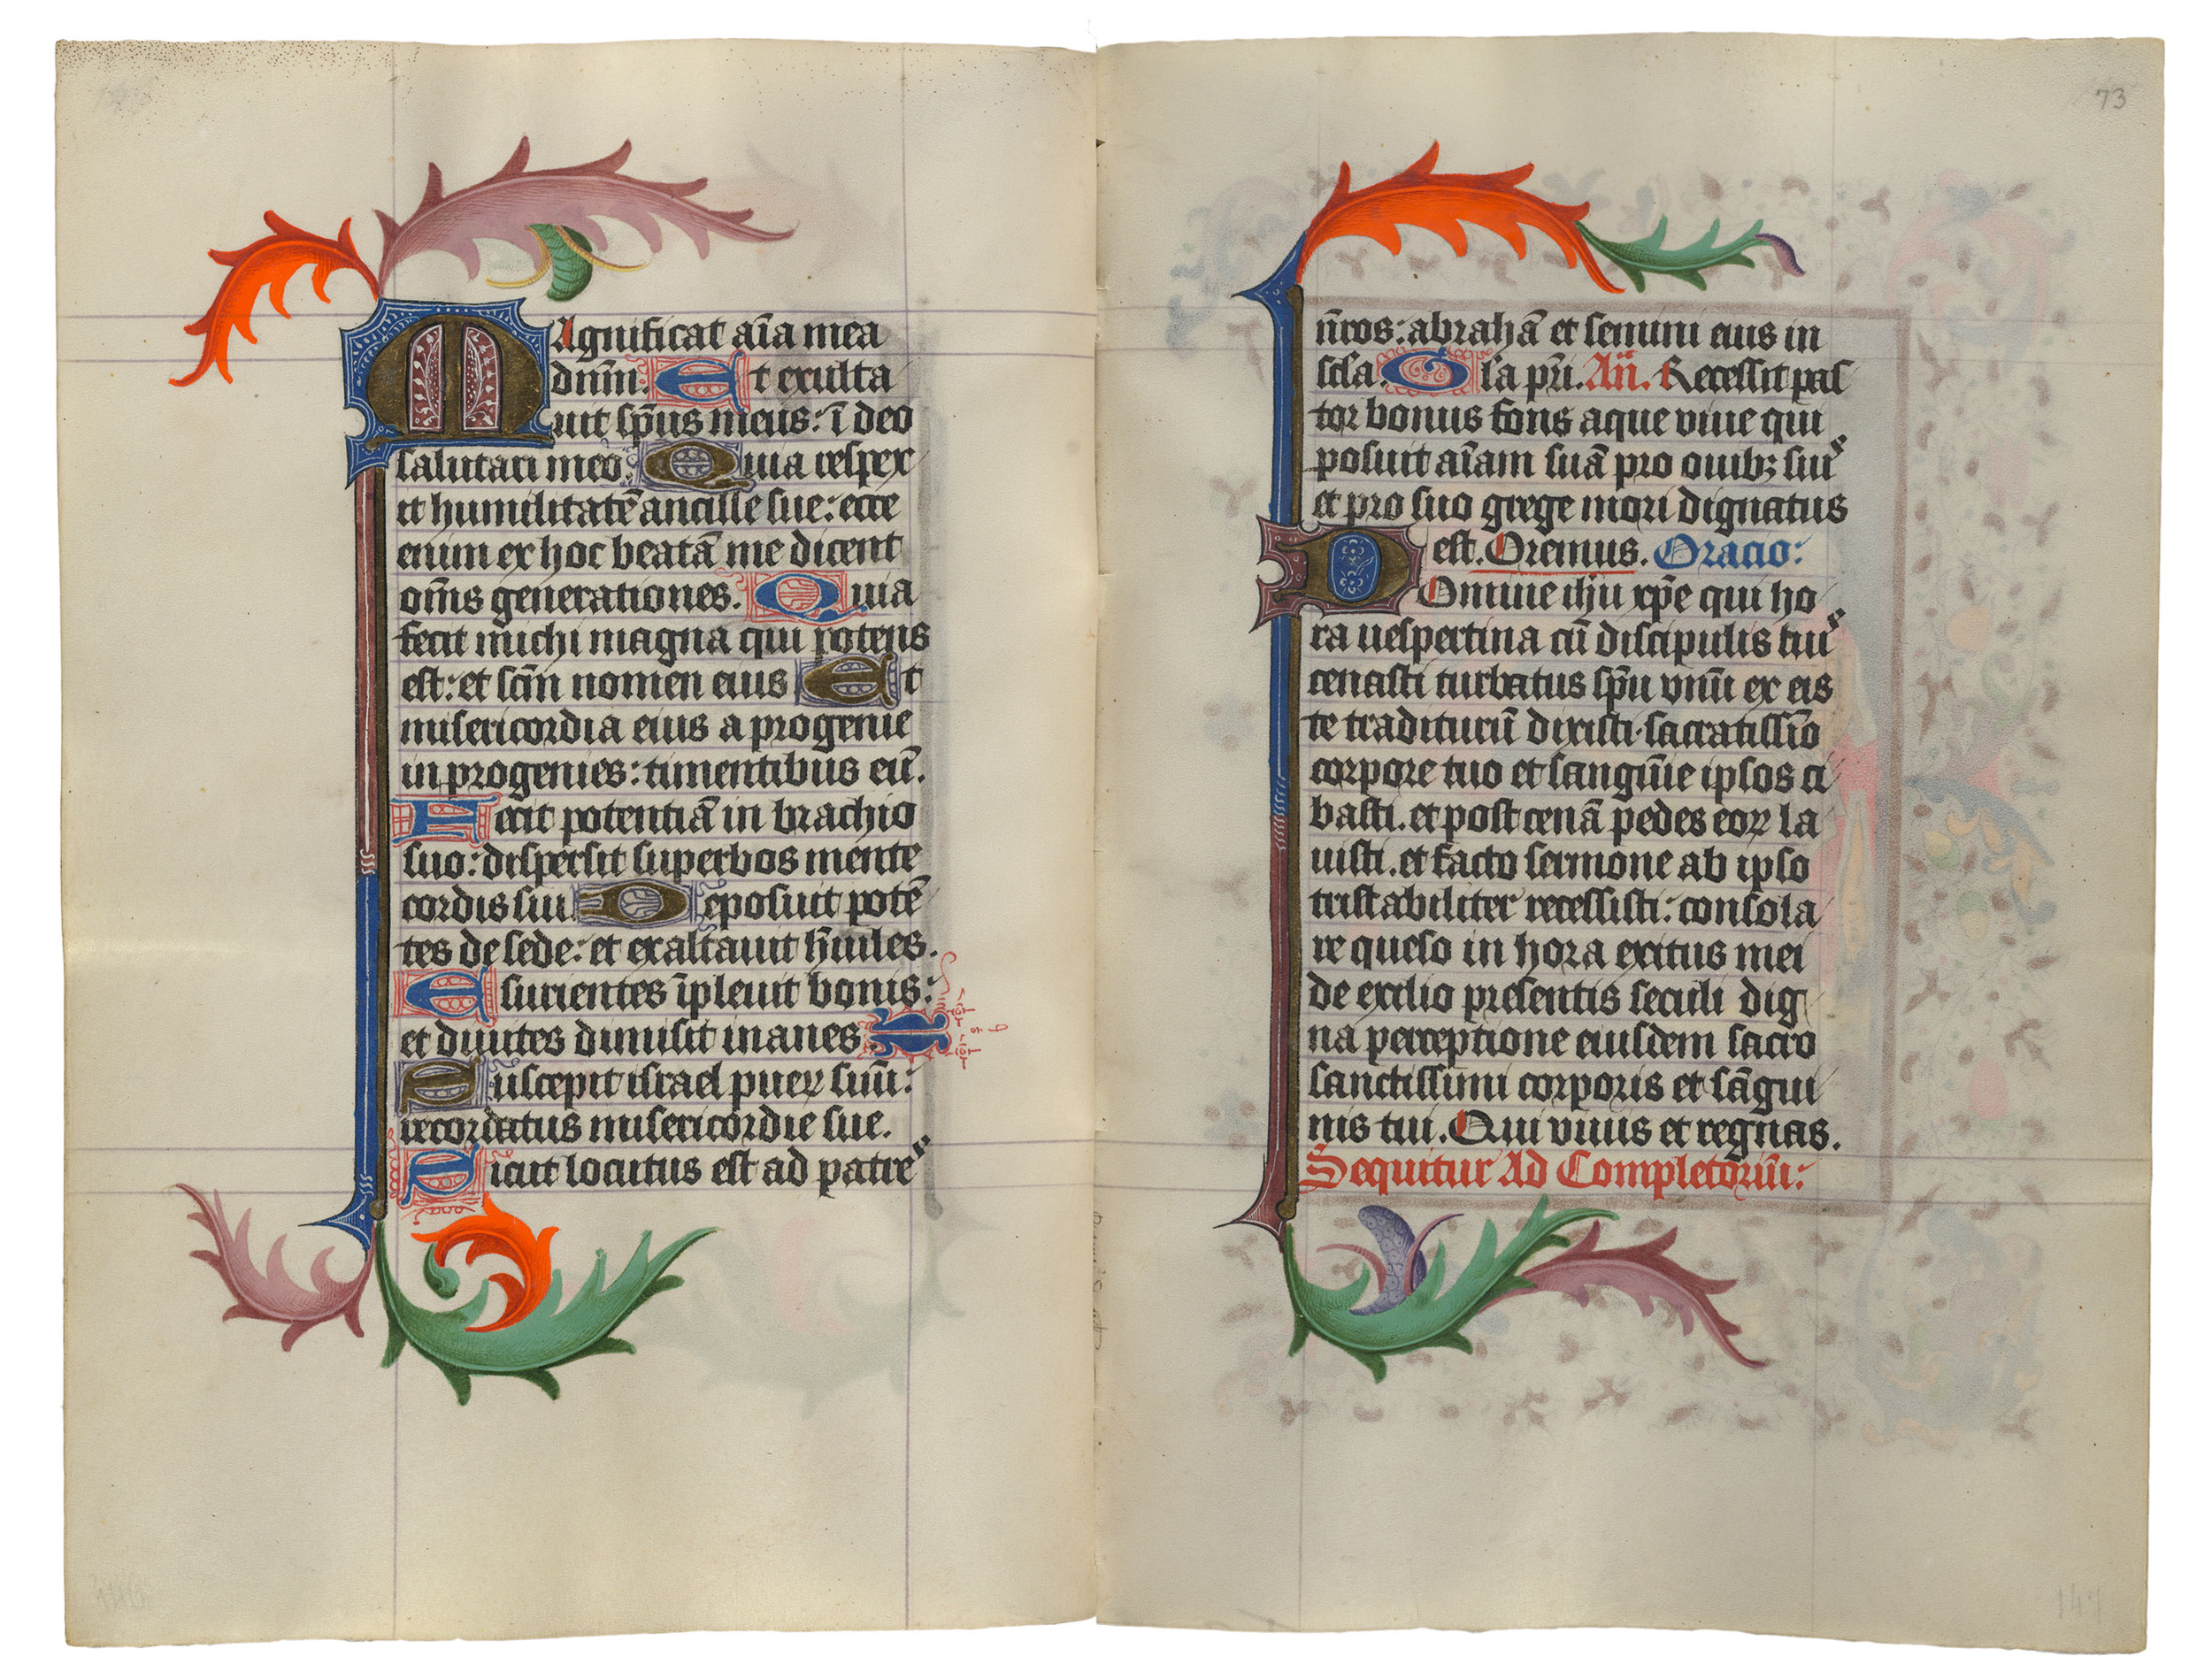 Magnificat aīa mea
dnm̄: Et exulta
uit sp̄us meus: ī deo
salutari meo. Quia respex
it humilitatē ancille sue: ecce
enim ex hoc beatā me dicent
om̄s generationes. Quia
fecit michi magna qui potens
est: et scm̄ nomen eius Et
misericordia eius a progenie
in progenies: timentibus eū.
Fecit potentiā in brachio
suo: dispersit superbos mente
cordis sui. Deposuit potē
tes de sede: et exaltauit hūiles.
Esurientes īpleuit bonis:
et diuites dimisit inanes.
Suscepit israel puerꝝ suū:
recordatus misericordie sue.
Sicut locutus est ad patres
73
n̄ros: abrahā et semini eius in
scl̄a. Gl̄a pr̄i. An̄. Recessit pas
tor bonus fons aque viue qui
posuit aīam suā pro ouibꝫ suis
et pro suo grege mori dignatus
est. Oremus. Oracio:
Domine ih̄u xp̄e qui ho
ra uespertina cū discipulis tuis
cenasti turbatus sp̄u vnū ex eis
te traditurū dixisti. sacratissīo
corpore tuo et sanguīe ipsos ci
basti. et post cenā pedes eoꝝ la
uisti. et facto sermone ab ipso
tristabiliter recessisti: consola
re queso in hora exitus mei
de exilio presentis seculi dig
na perceptione eiusdem sacro
sanctissimi corporis et sāgui
nis tui. Qui viuis et regnas.
Sequitur Ad Completoriū: